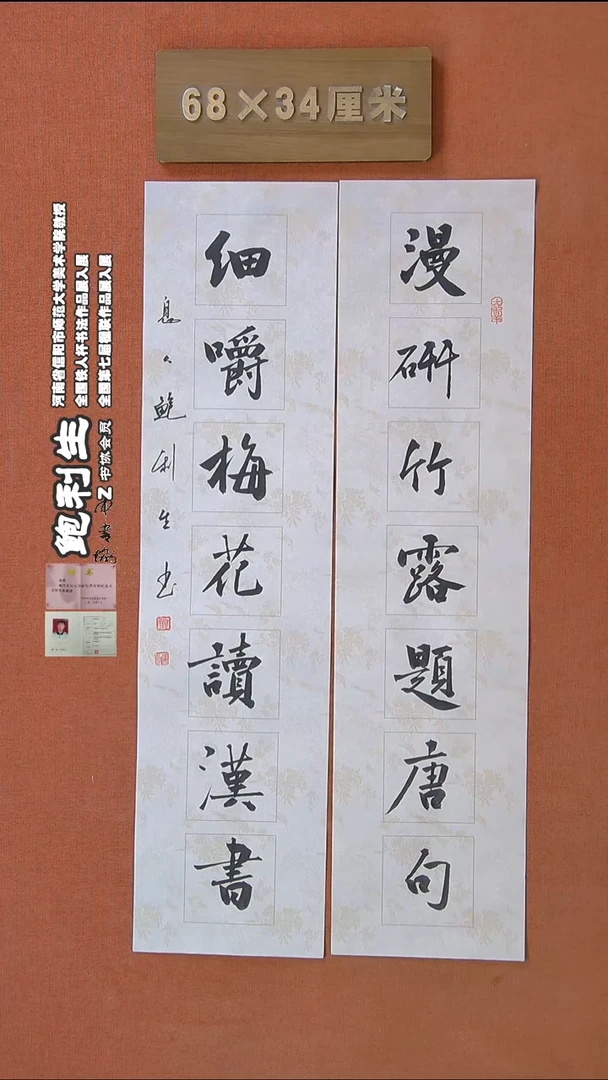 68×34厘米
漫研竹露題唐句
细嚼梅花讀漢書
鮑利生书
河南省信阳市师范大学美术学院教授
全国铁人杯书法作品展入展
全国第七届楹联作品展入展
鲍利生
书协会员